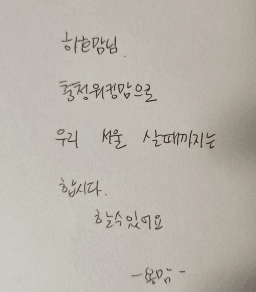 하흔맘님.
열정워킹맘으로
우리 서울 살때까지는
합시다.
할수있어요
-용맘-